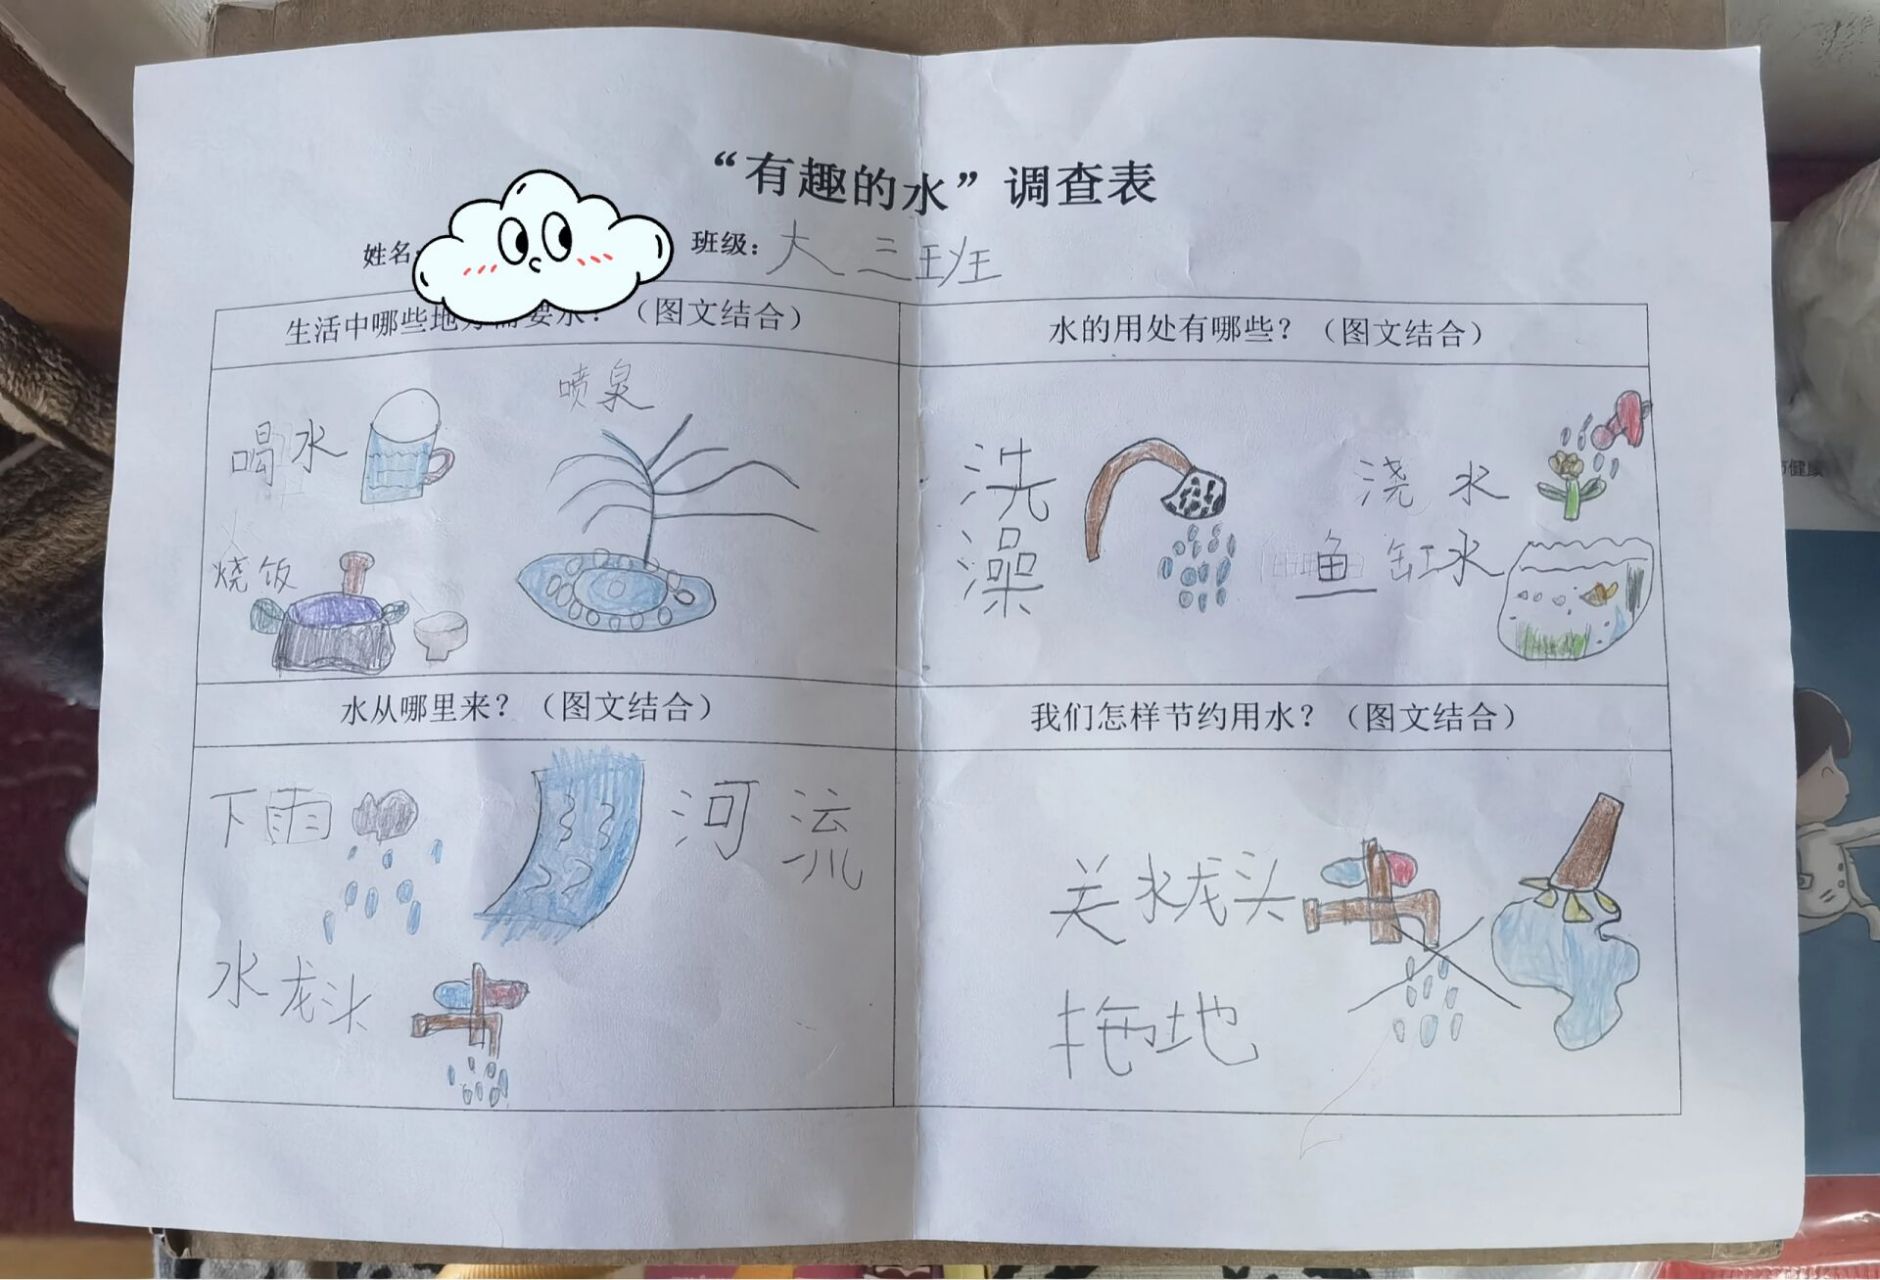 “有趣的水”调查表
姓名： 班级：大三班
生活中哪些地方需要水？（图文结合）
喷泉
喝水
烧饭
水的用处有哪些？（图文结合）
洗澡
浇水
鱼缸水
水从哪里来？（图文结合）
下雨
河流
水龙头
我们怎样节约用水？（图文结合）
关水龙头
拖地